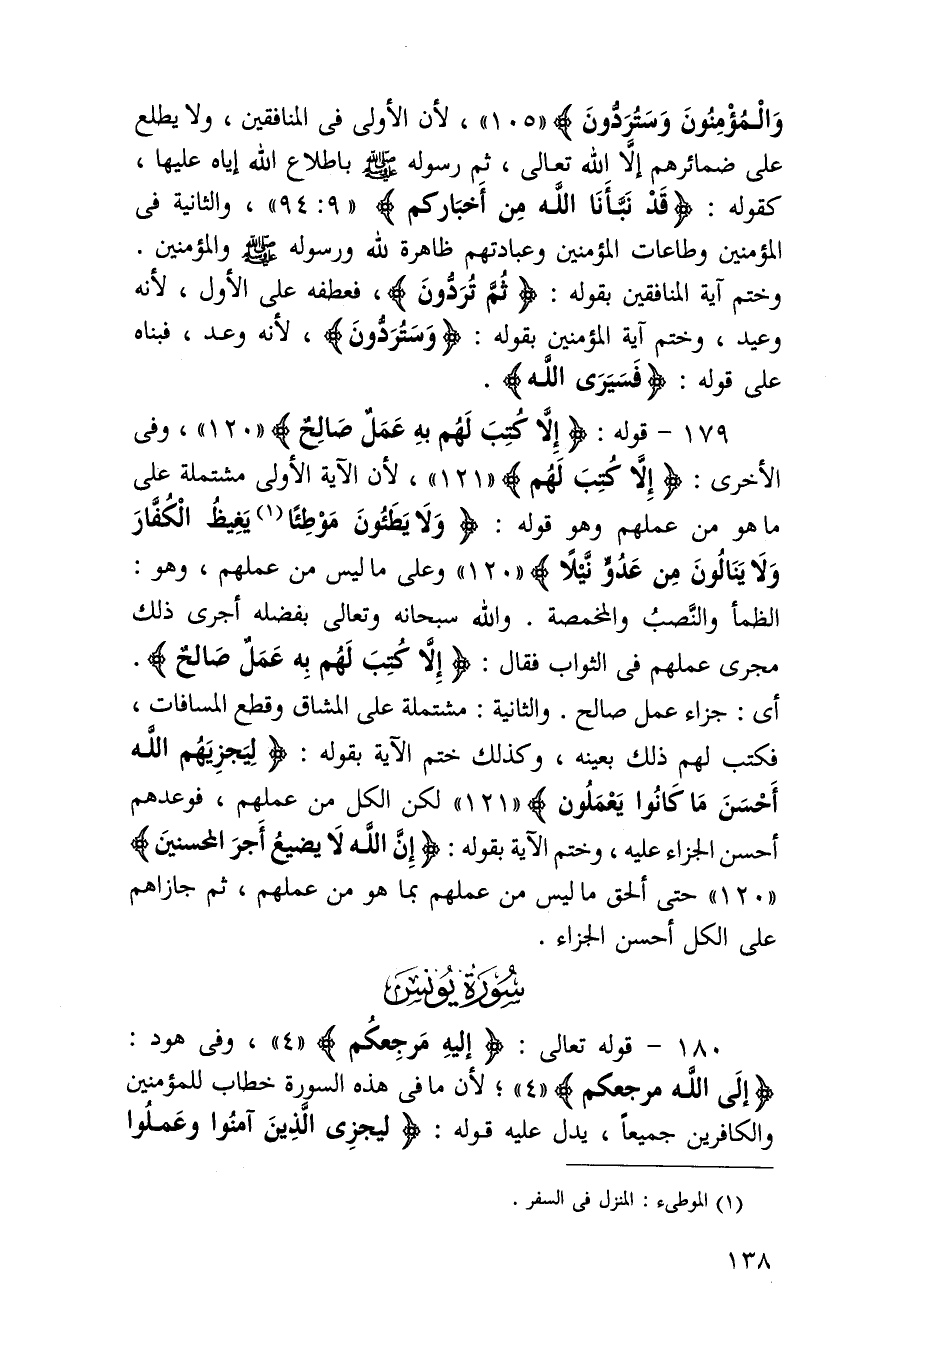 وَالْمُؤْمِنُونَ وَسَتُرَدُّونَ ﴾ «١٠٥» ، لأن الأولى فى المنافقين ، ولا يطلع
على ضمائرهم إلَّا الله تعـالى ، ثم رسوله ﷺ باطلاع الله إياه عليها ،
كقوله : ﴿ قَدْ نَبَّأَنَا اللَّه مِن أَخبَاركم ﴾ «٩: ٩٤» ، والثانية فى
المؤمنين وطاعات المؤمنين وعبادتهم ظاهرة لله ورسوله ﷺ والمؤمنين .
وختم آية المنافقين بقوله : ﴿ ثُمَّ تُرَدُّونَ ﴾ ، فعطفه على الأول ، لأنه
وعيد ، وختم آية المؤمنين بقوله : ﴿ وَسَتُرَدُّونَ ﴾ ، لأنه وعـد ، فبناه
على قوله : ﴿ فَسَيَرَى اللَّه ﴾ .
١٧٩ – قوله : ﴿ إِلَّا كُتِبَ لَهُم بِهِ عَمَلٌ صَالِحٌ ﴾ «١٢٠» ، وفى
الأخرى : ﴿ إِلَّا كُتِبَ لَهُم ﴾ «١٢١» ، لأن الآية الأولى مشتملة على
ما هو من عملهم وهو قوله : ﴿ وَلَا يَطَئُونَ مَوْطِئًا (١) يَغِيظُ الْكُفَّارَ
وَلَا يَنَالُونَ مِن عَدُوٍّ نَّيْلًا ﴾ «١٢٠» وعلى ما ليس من عملهم ، وهو :
الظمأ والنَّصبُ والمخمصة . والله سبحانه وتعالى بفضله أجرى ذلك
مجرى عملهم فى الثواب فقال : ﴿ إِلَّا كُتِبَ لَهُم بِه عَمَلٌ صَالحٌ ﴾ .
أى : جزاء عمل صالح . والثانية : مشتملة على المشاق وقطع المسافات ،
فكتب لهم ذلك بعينه ، وكذلك ختم الآية بقوله : ﴿ لِيَجزِيَهُم اللَّه
أَحْسَنَ مَا كَانُوا يَعْمَلُون ﴾ «١٢١» لكن الكل من عملهم ، فوعدهم
أحسن الجزاء عليه ، وختم الآية بقوله : ﴿ إِنَّ اللَّه لَا يضيعُ أَجرَ المحسنينَ ﴾
«١٢٠» حتى ألحق ما ليس من عملهم بما هو من عملهم ، ثم جازاهم
على الكل أحسن الجزاء .
سُورَة يُونس
١٨٠ – قوله تعالى : ﴿ إليهِ مَرجِعكُم ﴾ «٤» ، وفى هود :
﴿ إلَى اللَّه مرجعكم ﴾ «٤» ؛ لأن ما فى هذه السورة خطاب للمؤمنين
والكافرين جميعاً ، يدل عليه قـوله : ﴿ ليجزِى الَّذِينَ آمنُوا وعَمـلُوا
(١) الموطىء : المنزل فى السفر .
١٣٨